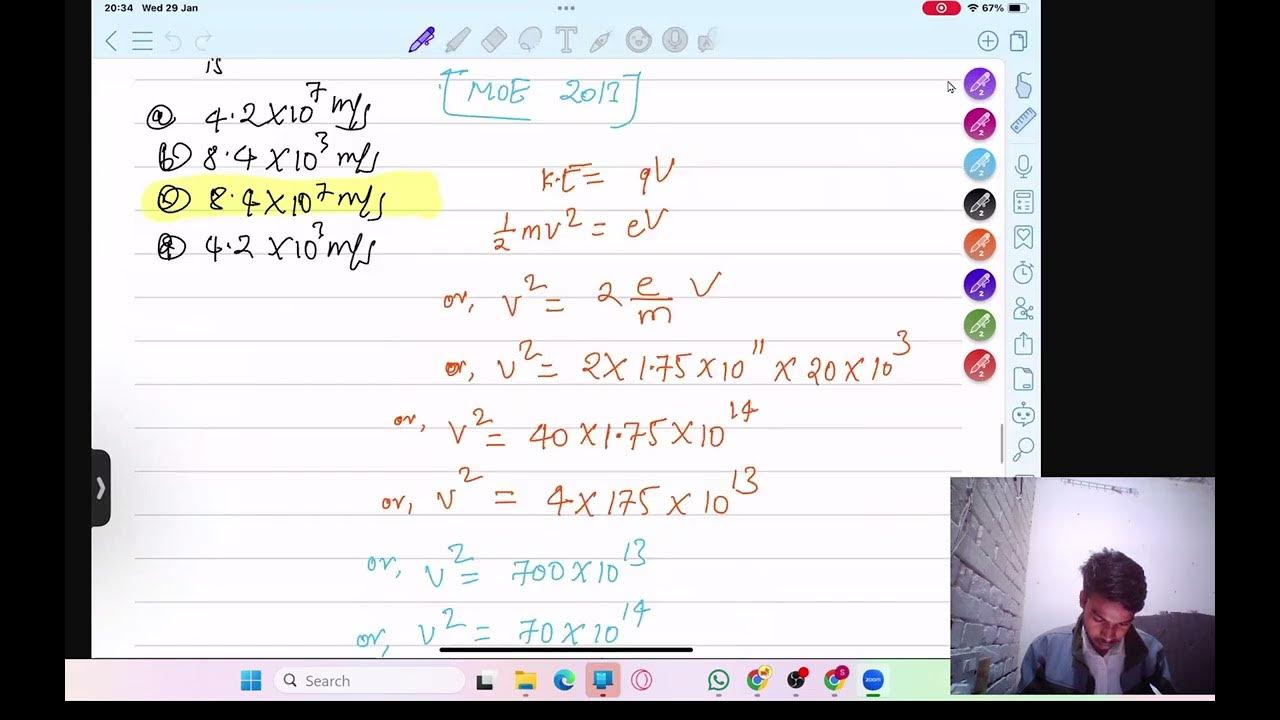 20:34 Wed 29 Jan
67%
is
[MOE 2013]
(a) 4.2×10⁷ m/s
(b) 8.4×10³ m/s
(c) 8.4×10⁷ m/s
(d) 4.2×10³ m/s
K.E = qV
½mv² = eV
or, v² = 2 e/m V
or, v² = 2×1.75×10¹¹ × 20×10³
or, v² = 40×1.75×10¹⁴
or, v² = 4×175×10¹³
or, v² = 700×10¹³
or, v² = 70×10¹⁴
Search
zoom